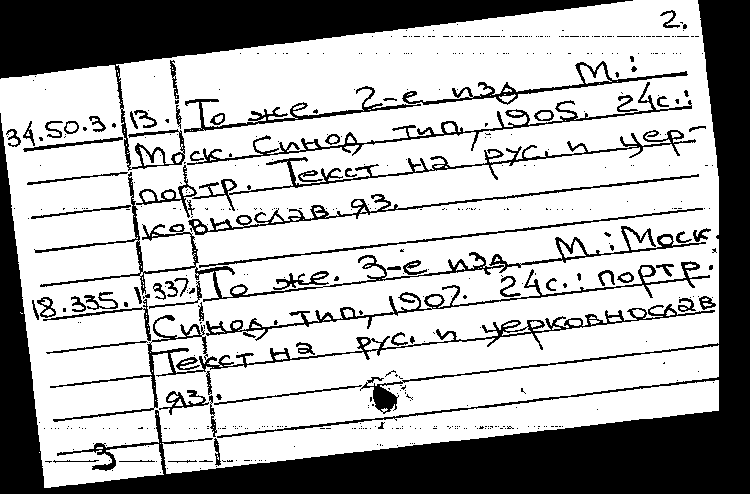 2.
34.50.3.13. То же. 2-е изд М.:
Моск. Синод. тип., 1905. 24с.:
портр. Текст на рус. и цер-
ковнослав. яз.
18.335.1.337. То же. 3-е изд. М.: Моск.
Синод. тип., 1907. 24с.: портр.
Текст на рус. и церковнослав
яз.
3